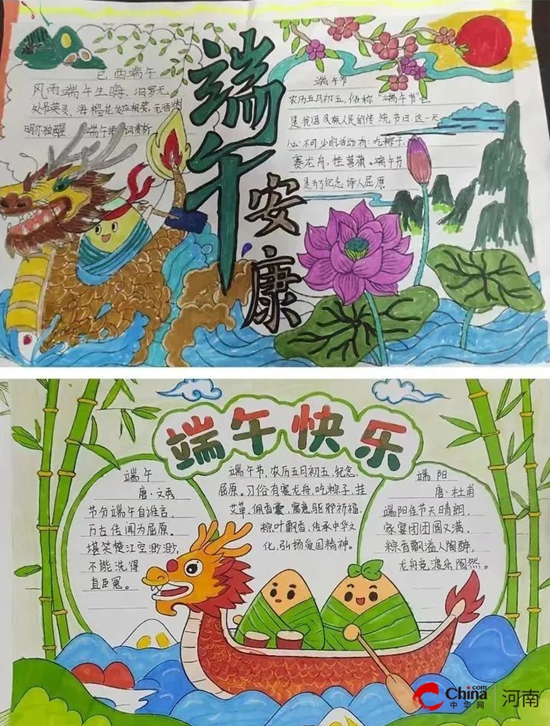 己酉端午
风雨端午生晦
端午节
农历五月初五,俗称"端午节"
是我国汉族人民的传统节日这一天
必不可少的活动为:吃粽子,
赛龙舟,挂菖蒲、端午节
是为了纪念诗人屈原
端午安康
端午快乐
端午
唐·文秀
节分端午自谁言,
万古传闻为屈原。
堪笑楚江空渺渺,
不能洗得
直臣冤。
端午节,农历五月初五,纪念
屈原。习俗有赛龙舟,吃粽子,挂
艾草,佩香囊,寓意驱邪祈福,
粽叶飘香,传承中华文
化,弘扬爱国精神。
端阳
唐·杜甫
端阳佳节天晴朗,
家宴团团圆又满,
粽香飘溢人陶醉,
龙舟竞渡乐陶然。
China
中华网
河南